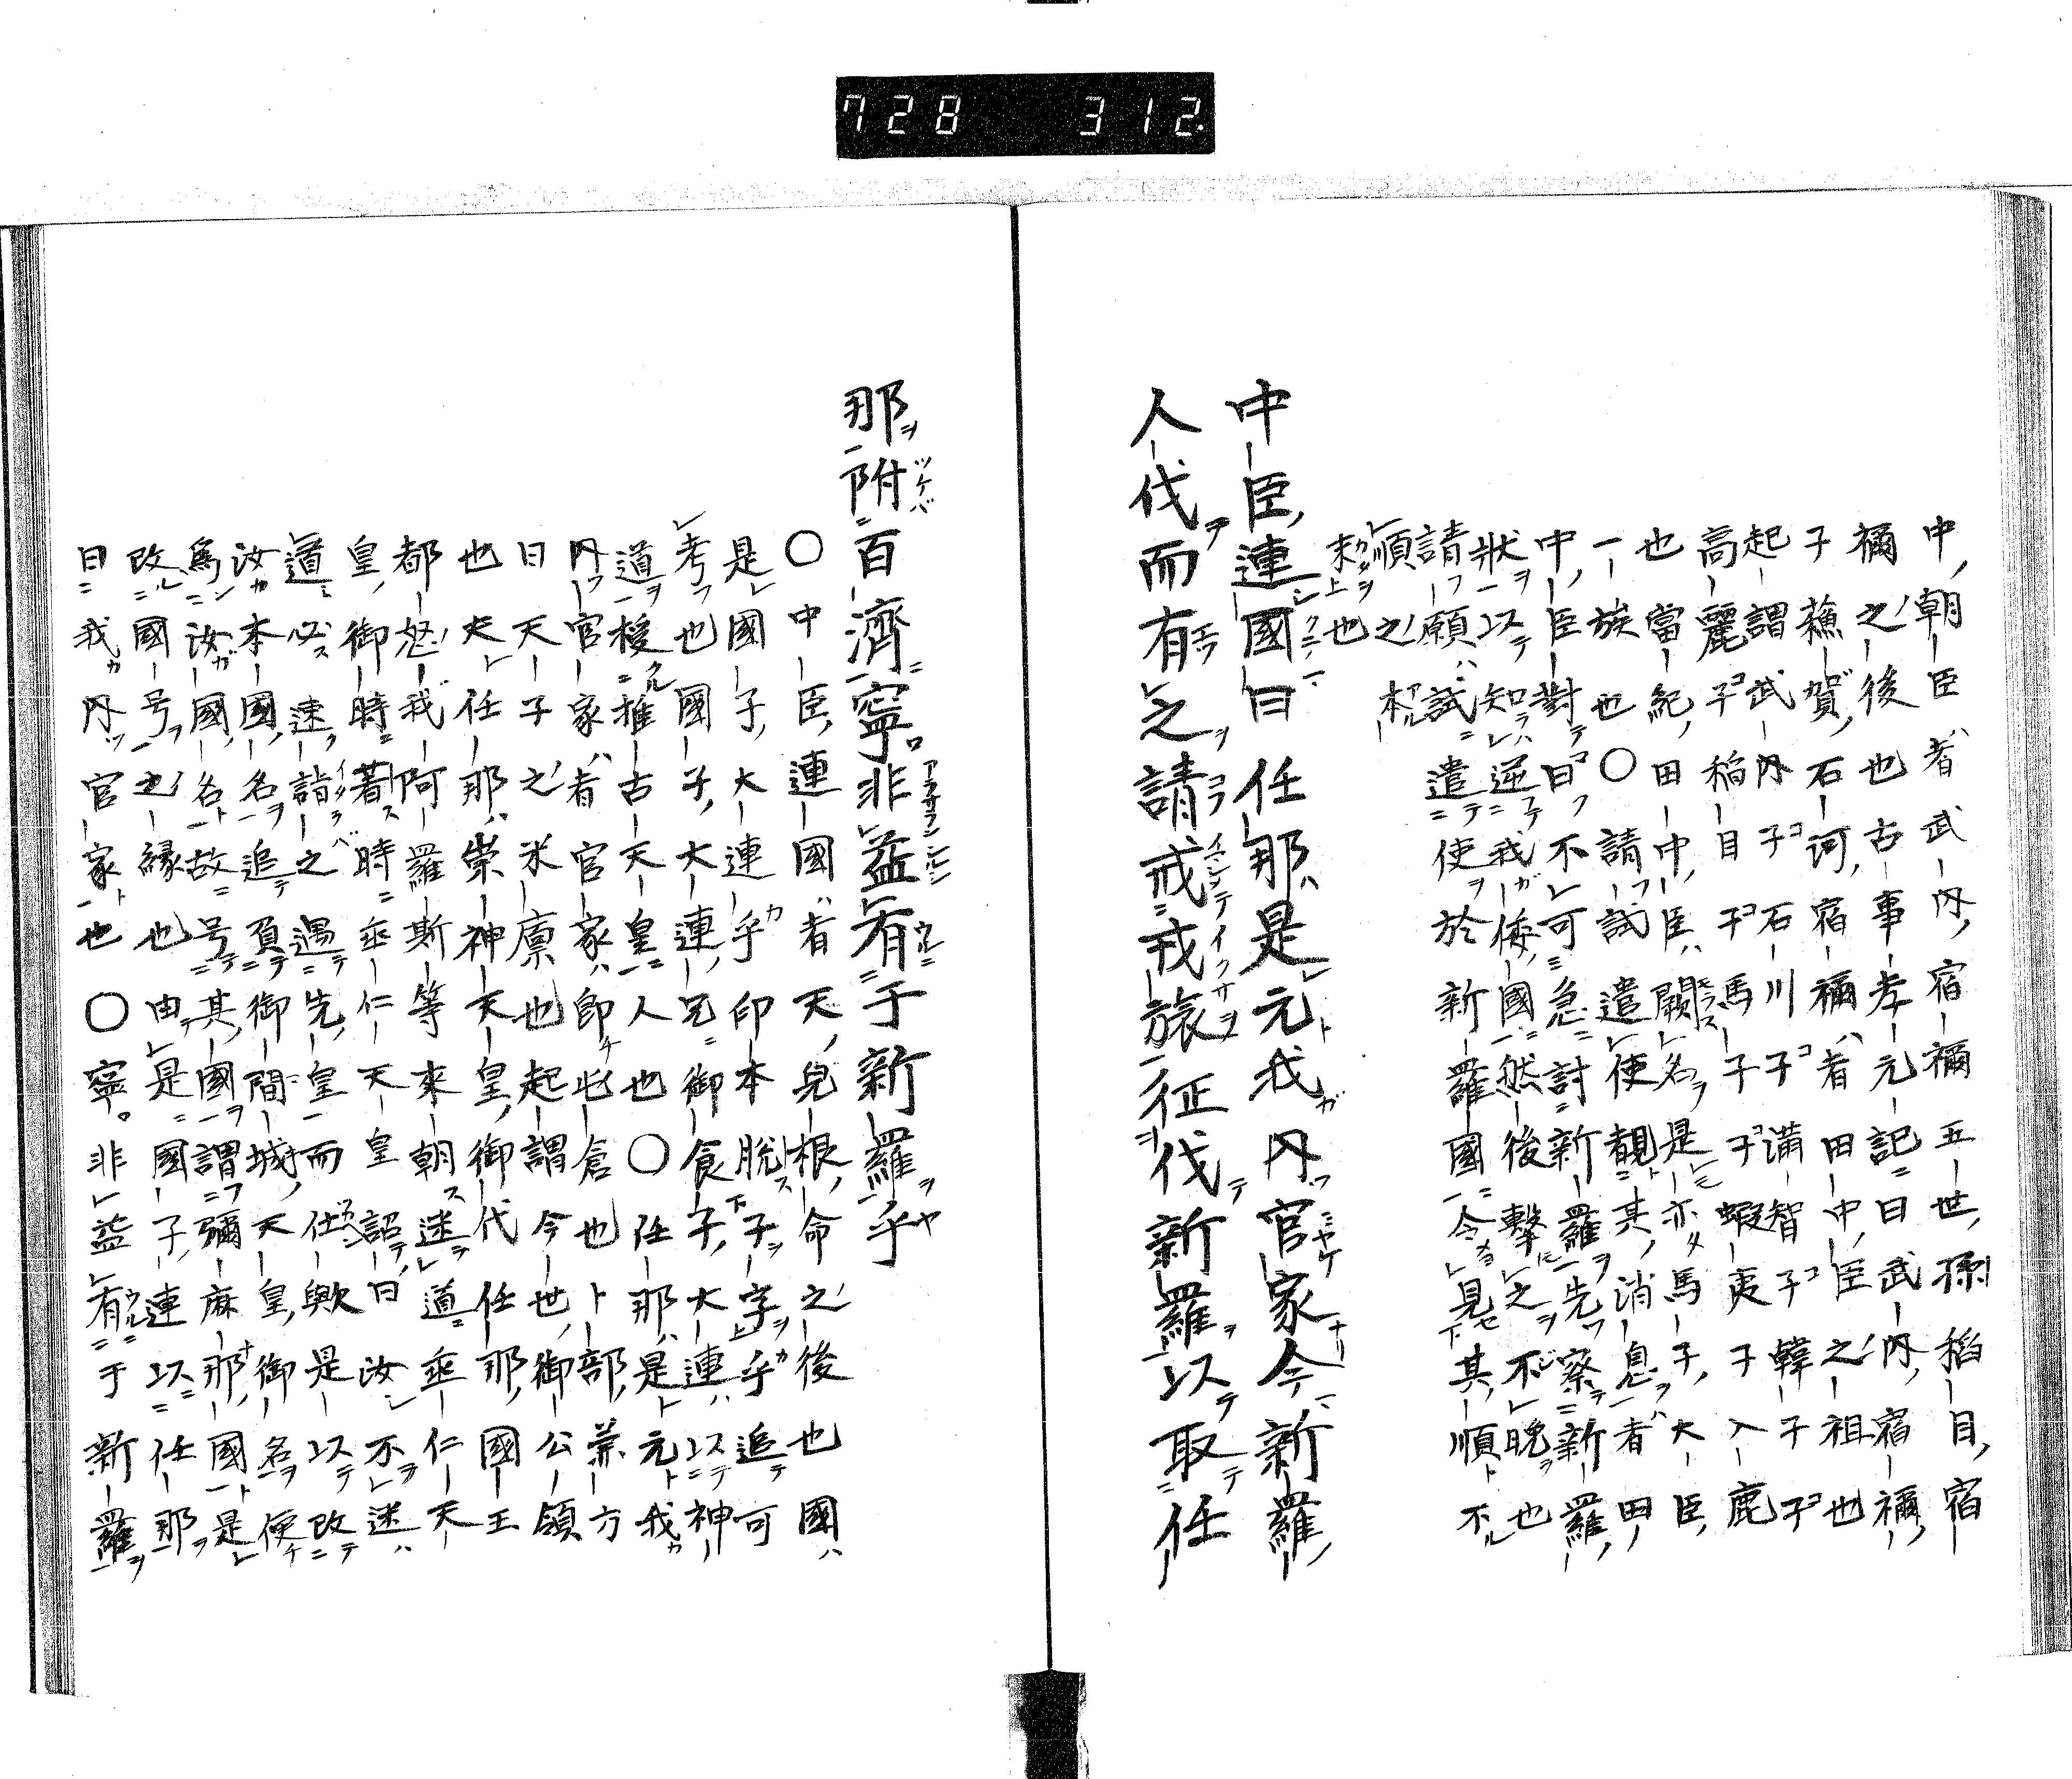 728 312.
中朝臣者武内宿禰五世孫稻目宿
禰之後也古事孝元記曰武内宿禰
子蘓賀石河宿禰者田中臣之祖也
起謂武内子石川子満智子韓子子
高麗子稲目子馬子子蝦夷子入鹿
也當紀田中臣闕名是亦馬子大臣
一族也〇請試遣使覩其消息者田
中臣對曰不可急討新羅先察新羅
狀以知逆我倭國然後擊之不晚也
請願試遣使於新羅國令見其順不
順之本
来也
中臣連國曰任那是元我内官家今新羅
人伐而有之請戒戎旅征伐新羅以取任
那附百濟寧非益有于新羅乎
〇中臣連國者天兒根命之後也國
是國子大連乎印本脱子字乎追可
考也國子大連兄御食子大連以神
道授推古天皇人也〇任那是元我
内官家者官家即屯倉也卜部兼方
曰天子之米廩也起謂今世御公領
也夫任那崇神天皇御代任那國王
都怒我阿羅斯等來朝迷道垂仁天
皇御時著時垂仁天皇詔曰汝不迷
道必速詣之遇先皇而仕歟是以改
汝本國名追負御間城天皇御名便
為汝國名故号其國謂彌麻那國是
改國号之縁也由是國子連以任那
曰我内官家也〇寧非益有于新羅